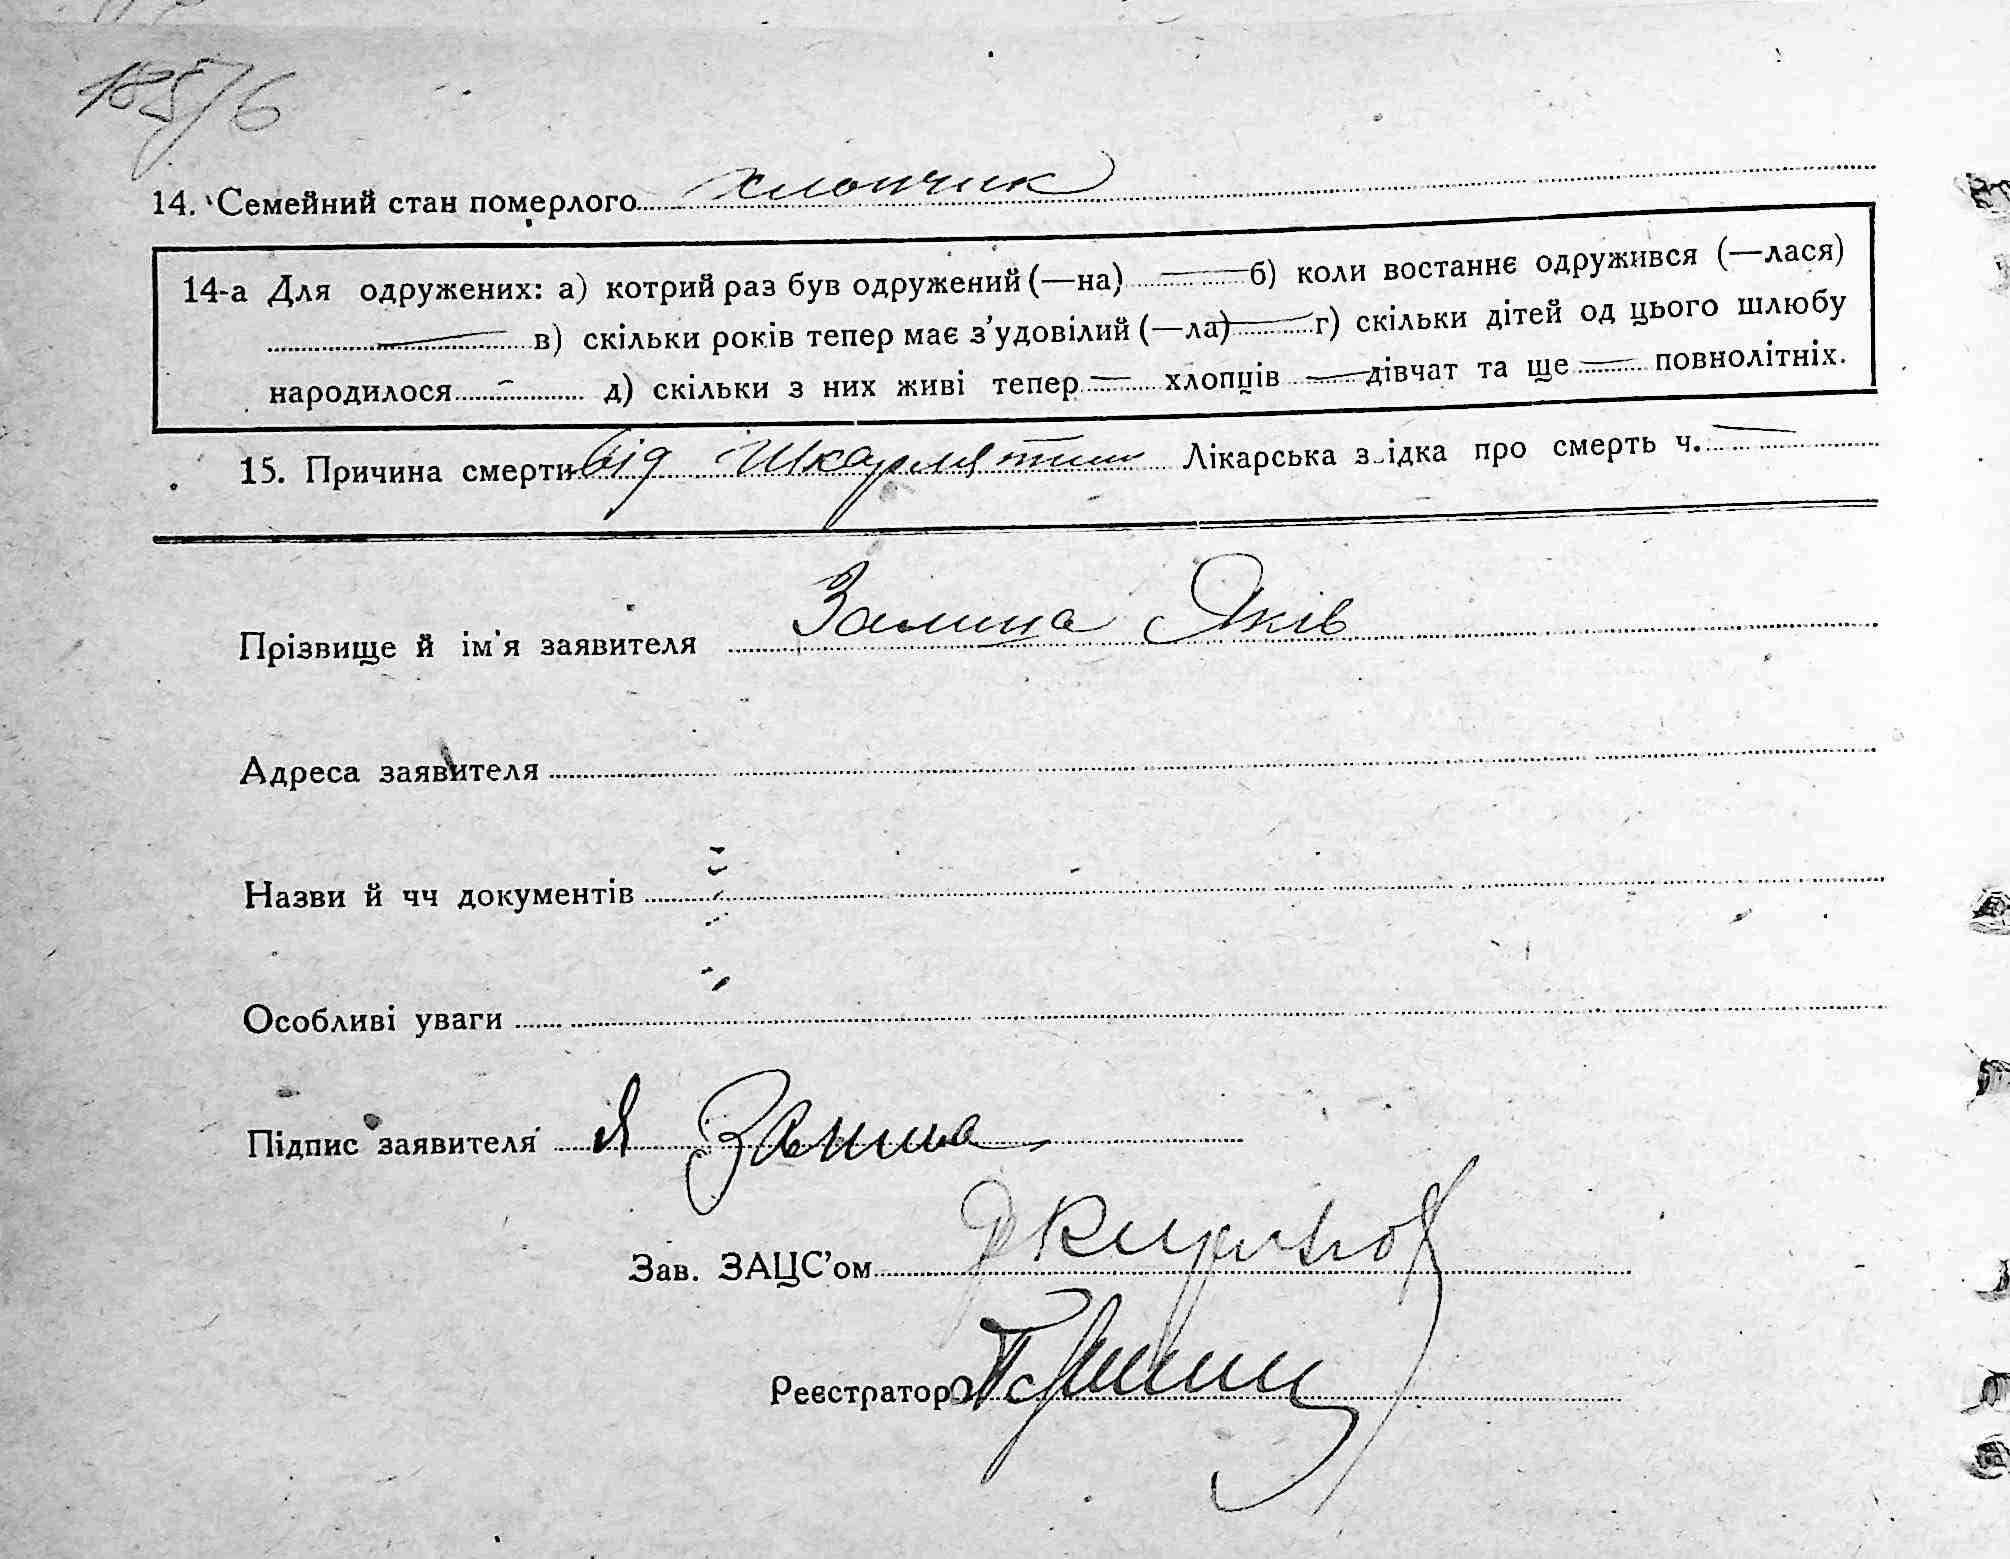 185/6
14. Семейний стан померлого хлопчик
14-а Для одружених: а) котрий раз був одружений (—на) — б) коли востаннє одружився (—лася)
— в) скільки років тепер має з’удовілий (—ла) — г) скільки дітей од цього шлюбу
народилося — д) скільки з них живі тепер — хлопців — дівчат та ще — повнолітніх.
15. Причина смерти від Шкарлятини Лікарська з ідка про смерть ч. —
Прізвище й ім'я заявителя Яків
Адреса заявителя
Назви й чч документів
Особливі уваги
Підпис заявителя Я
Зав. ЗАЦС’ом
Реєстратор